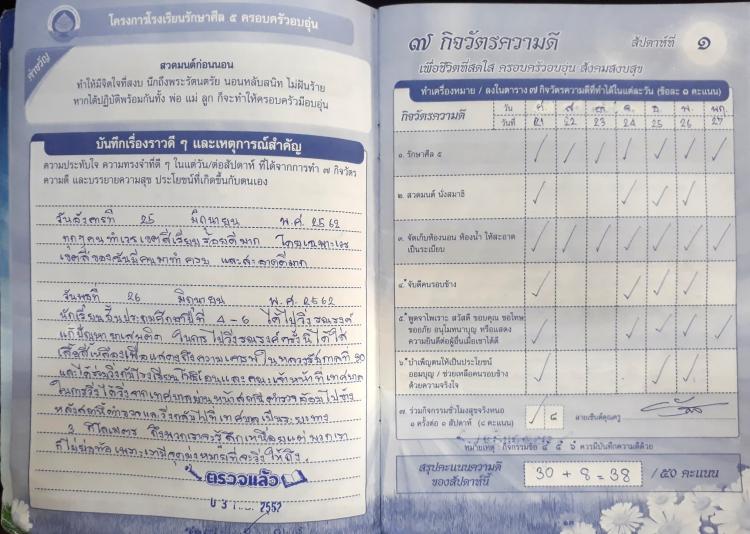 โครงการโรงเรียนรักษาศีล ๕ ครอบครัวอบอุ่น
คำขวัญ
สวดมนต์ก่อนนอน
ทำให้มีจิตใจที่สงบ นึกถึงพระรัตนตรัย นอนหลับสนิท ไม่ฝันร้าย
หากได้ปฏิบัติพร้อมกันทั้ง พ่อ แม่ ลูก ก็จะทำให้ครอบครัวมีอบอุ่น
บันทึกเรื่องราวดี ๆ และเหตุการณ์สำคัญ
ความประทับใจ ความทรงจำที่ดี ๆ ในแต่วัน/ต่อสัปดาห์ ที่ได้จากการทำ ๗ กิจวัตร
ความดี และบรรยายความสุข ประโยชน์ที่เกิดขึ้นกับตนเอง
วันอังคารที่ 25 มิถุนายน พ.ศ. 2562
ทุกๆคนทำเวรเขตสีเรียบร้อยดีมาก โดยเฉพาะเวร
เขตสีของฉันมีคนมาทำครบ และสะอาดดีมาก
วันพุธที่ 26 มิถุนายน พ.ศ. 2562
นักเรียนชั้นประถมศึกษาปีที่ 4 - 6 ได้ไปวิ่งรณรงค์
แก้ปัญหายาเสพติด ในการไปวิ่งรณรงค์ครั้งนี้ได้ใส่
เสื้อสีเหลืองเพื่อแสดงถึงความเคารพในหลวงรัชกาลที่ 10
และได้ร่วมวิ่งกับโรงเรียน และคณะเจ้าหน้าที่เทศบาล
ในการวิ่งได้วิ่งจากเทศบาลผ่านหน้าสถานีตำรวจ อ้อมไปข้าง
หลังสถานีตำรวจและวิ่งกลับไปที่เทศบาลเป็นระยะทาง
3 กิโลเมตร ถึงพวกเราจะรู้สึกเหนื่อยแต่พวกเรา
ก็ไม่ย่อท้อ เพราะเรามีจุดมุ่งหมายที่จะวิ่งให้ถึง
ตรวจแล้ว
๗ กิจวัตรความดี สัปดาห์ที่ ๑
เพื่อชีวิตที่สดใส ครอบครัวอบอุ่น สังคมสงบสุข
ทำเครื่องหมาย / ลงในตาราง ๗ กิจวัตรความดีที่ทำได้ในแต่ละวัน (ข้อละ ๑ คะแนน)
กิจวัตรความดี วัน ศ ส อา จ อ พ พฤ
วันที่ 21 22 23 24 25 26 27
๑. รักษาศีล ๕
๒. สวดมนต์ นั่งสมาธิ
๓. จัดเก็บห้องนอน ห้องน้ำ ให้สะอาด
เป็นระเบียบ
๔. จับดีคนรอบข้าง
๕. พูดจาไพเราะ สวัสดี ขอบคุณ ขอโทษ
รออภัย อนุโมทนาบุญ หรือแสดง
ความยินดีต่อผู้อื่นเมื่อเขาได้ดี
๖. บำเพ็ญตนให้เป็นประโยชน์
ออมบุญ / ช่วยเหลือคนรอบข้าง
ด้วยความจริงใจ
๗. ร่วมกิจกรรมชั่วโมงสุขจริงหนอ
๑ ครั้งต่อ ๑ สัปดาห์ (๘ คะแนน) ๘ ลายเซ็นต์คุณครู
หมายเหตุ : กิจกรรมข้อ ๔ ๕ ๖ ควรมีบันทึกความดีด้วย
สรุปคะแนนความดี
ของสัปดาห์นี้ 30 + 8 = 38 / ๕๐ คะแนน